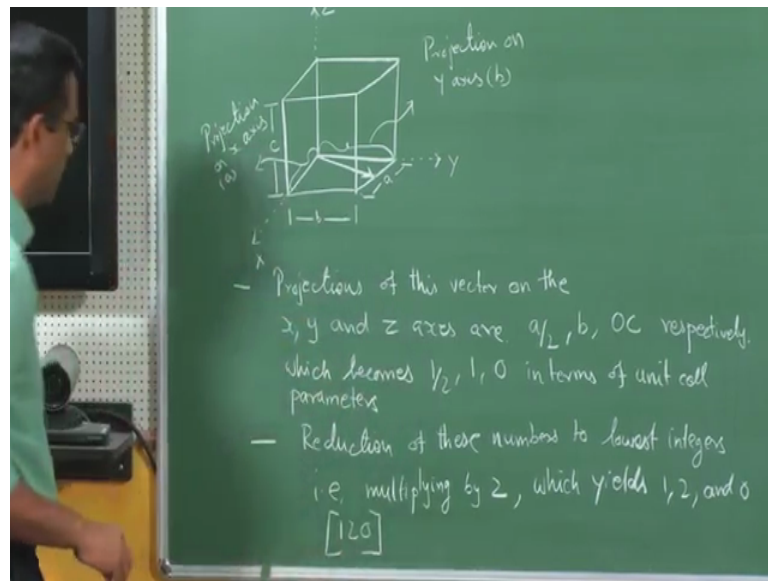 Z
Projection on
Y axis (b)
Projection
on
x axis
(a)
c
a
Y
b
X
- Projections of this vector on the
x, y and z axes are a/2, b, 0C respectively.
which becomes 1/2, 1, 0 in terms of unit cell
parameters
- Reduction of these numbers to lowest integers
i.e. multiplying by 2, which yields 1, 2, and 0
[120]